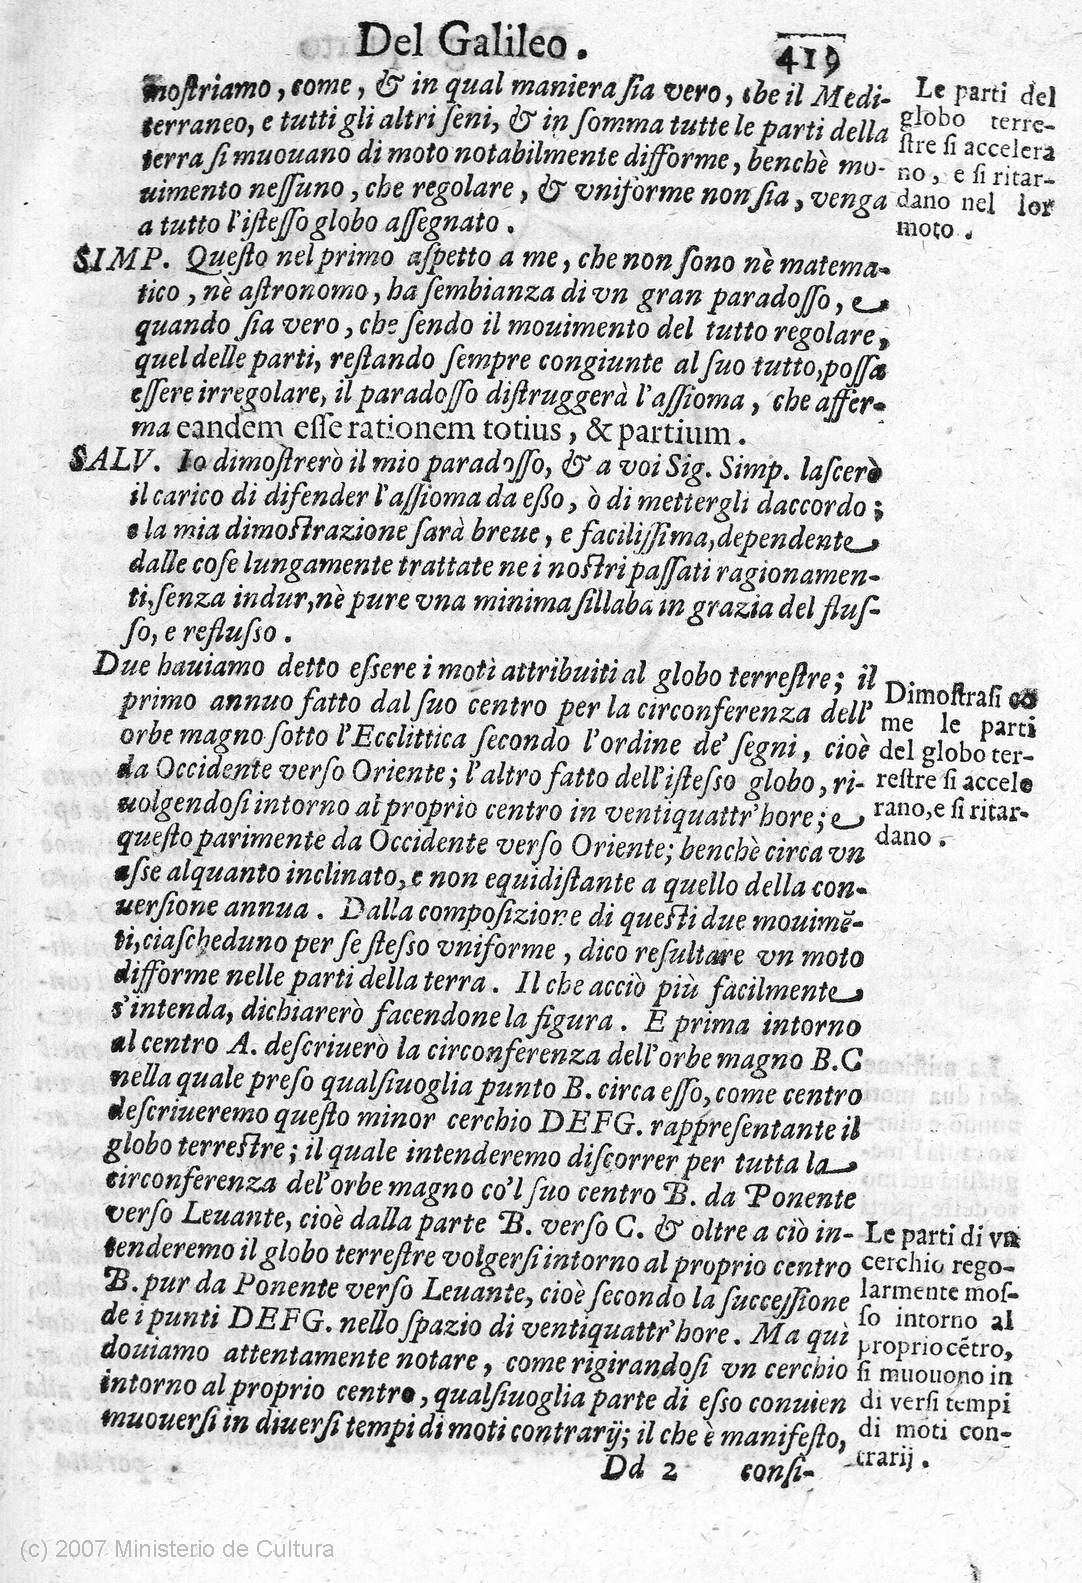 Del Galileo.
419
moſtriamo, come, & in qual maniera ſia vero, che il Medi-
terraneo, e tutti gli altri ſeni, & in ſomma tutte le parti della
terra ſi muouano di moto notabilmente difforme, benchè mo-
uimento neſſuno, che regolare, & vniforme non ſia, venga
a tutto l'iſteſſo globo aſſegnato.
Le parti del
globo terre-
ſtre ſi accelera
no, e ſi ritar-
dano nel lor
moto.
SIMP. Queſto nel primo aſpetto a me, che non ſono nè matema-
tico, nè aſtronomo, ha ſembianza di vn gran paradoſſo, e
quando ſia vero, che ſendo il mouimento del tutto regolare,
quel delle parti, reſtando ſempre congiunte al ſuo tutto, poſſa
eſſere irregolare, il paradoſſo diſtruggerà l'aſſioma, che affer-
ma eandem eſſe rationem totius, & partium.
SALV. Io dimoſtrerò il mio paradoſſo, & a voi Sig. Simp. laſcerò
il carico di difender l'aſſioma da eßo, ò di mettergli daccordo;
e la mia dimoſtrazione ſarà breue, e faciliſſima, dependente
dalle coſe lungamente trattate ne i noſtri paſſati ragionamen-
ti, ſenza indur, nè pure vna minima ſillaba in grazia del fluſ-
ſo, e refluſso.
Due hauiamo detto eſsere i moti attribuiti al globo terreſtre; il
primo annuo fatto dal ſuo centro per la circonferenza dell'
orbe magno ſotto l'Ecclittica ſecondo l'ordine de' ſegni, cioè
da Occidente verſo Oriente; l'altro fatto dell'iſteſso globo, ri-
uolgendoſi intorno al proprio centro in ventiquattr'hore; e
queſto parimente da Occidente verſo Oriente; benchè circa vn
aſse alquanto inclinato, e non equidiſtante a quello della con-
uerſione annua. Dalla compoſizione di queſti due mouimē-
ti, ciaſcheduno per ſe ſteſso vniforme, dico reſultare vn moto
difforme nelle parti della terra. Il che acciò più facilmente
s'intenda, dichiarerò facendone la figura. E prima intorno
al centro A. deſcriuerò la circonferenza dell'orbe magno B.C
nella quale preſo qualſiuoglia punto B. circa eſſo, come centro
deſcriueremo queſto minor cerchio DEFG. rappreſentante il
globo terreſtre; il quale intenderemo diſcorrer per tutta la
circonferenza del'orbe magno co'l ſuo centro B. da Ponente
verſo Leuante, cioè dalla parte B. verſo C. & oltre a ciò in-
tenderemo il globo terreſtre volgerſi intorno al proprio centro
B. pur da Ponente verſo Leuante, cioè ſecondo la ſucceſſione
de i punti DEFG. nello ſpazio di ventiquattr'hore. Ma quì
douiamo attentamente notare, come rigirandoſi vn cerchio
intorno al proprio centro, qualſiuoglia parte di eſso conuien
muouerſi in diuerſi tempi di moti contrarij; il che è manifeſto,
Dimoſtraſi co
me le parti
del globo ter-
reſtre ſi accele
rano, e ſi ritar-
dano.
Le parti di vn
cerchio rego-
larmente moſ-
ſo intorno al
proprio cētro,
ſi muouono in
di verſi tempi
di moti con-
trarij.
Dd 2
conſi-
(c) 2007 Ministerio de Cultura